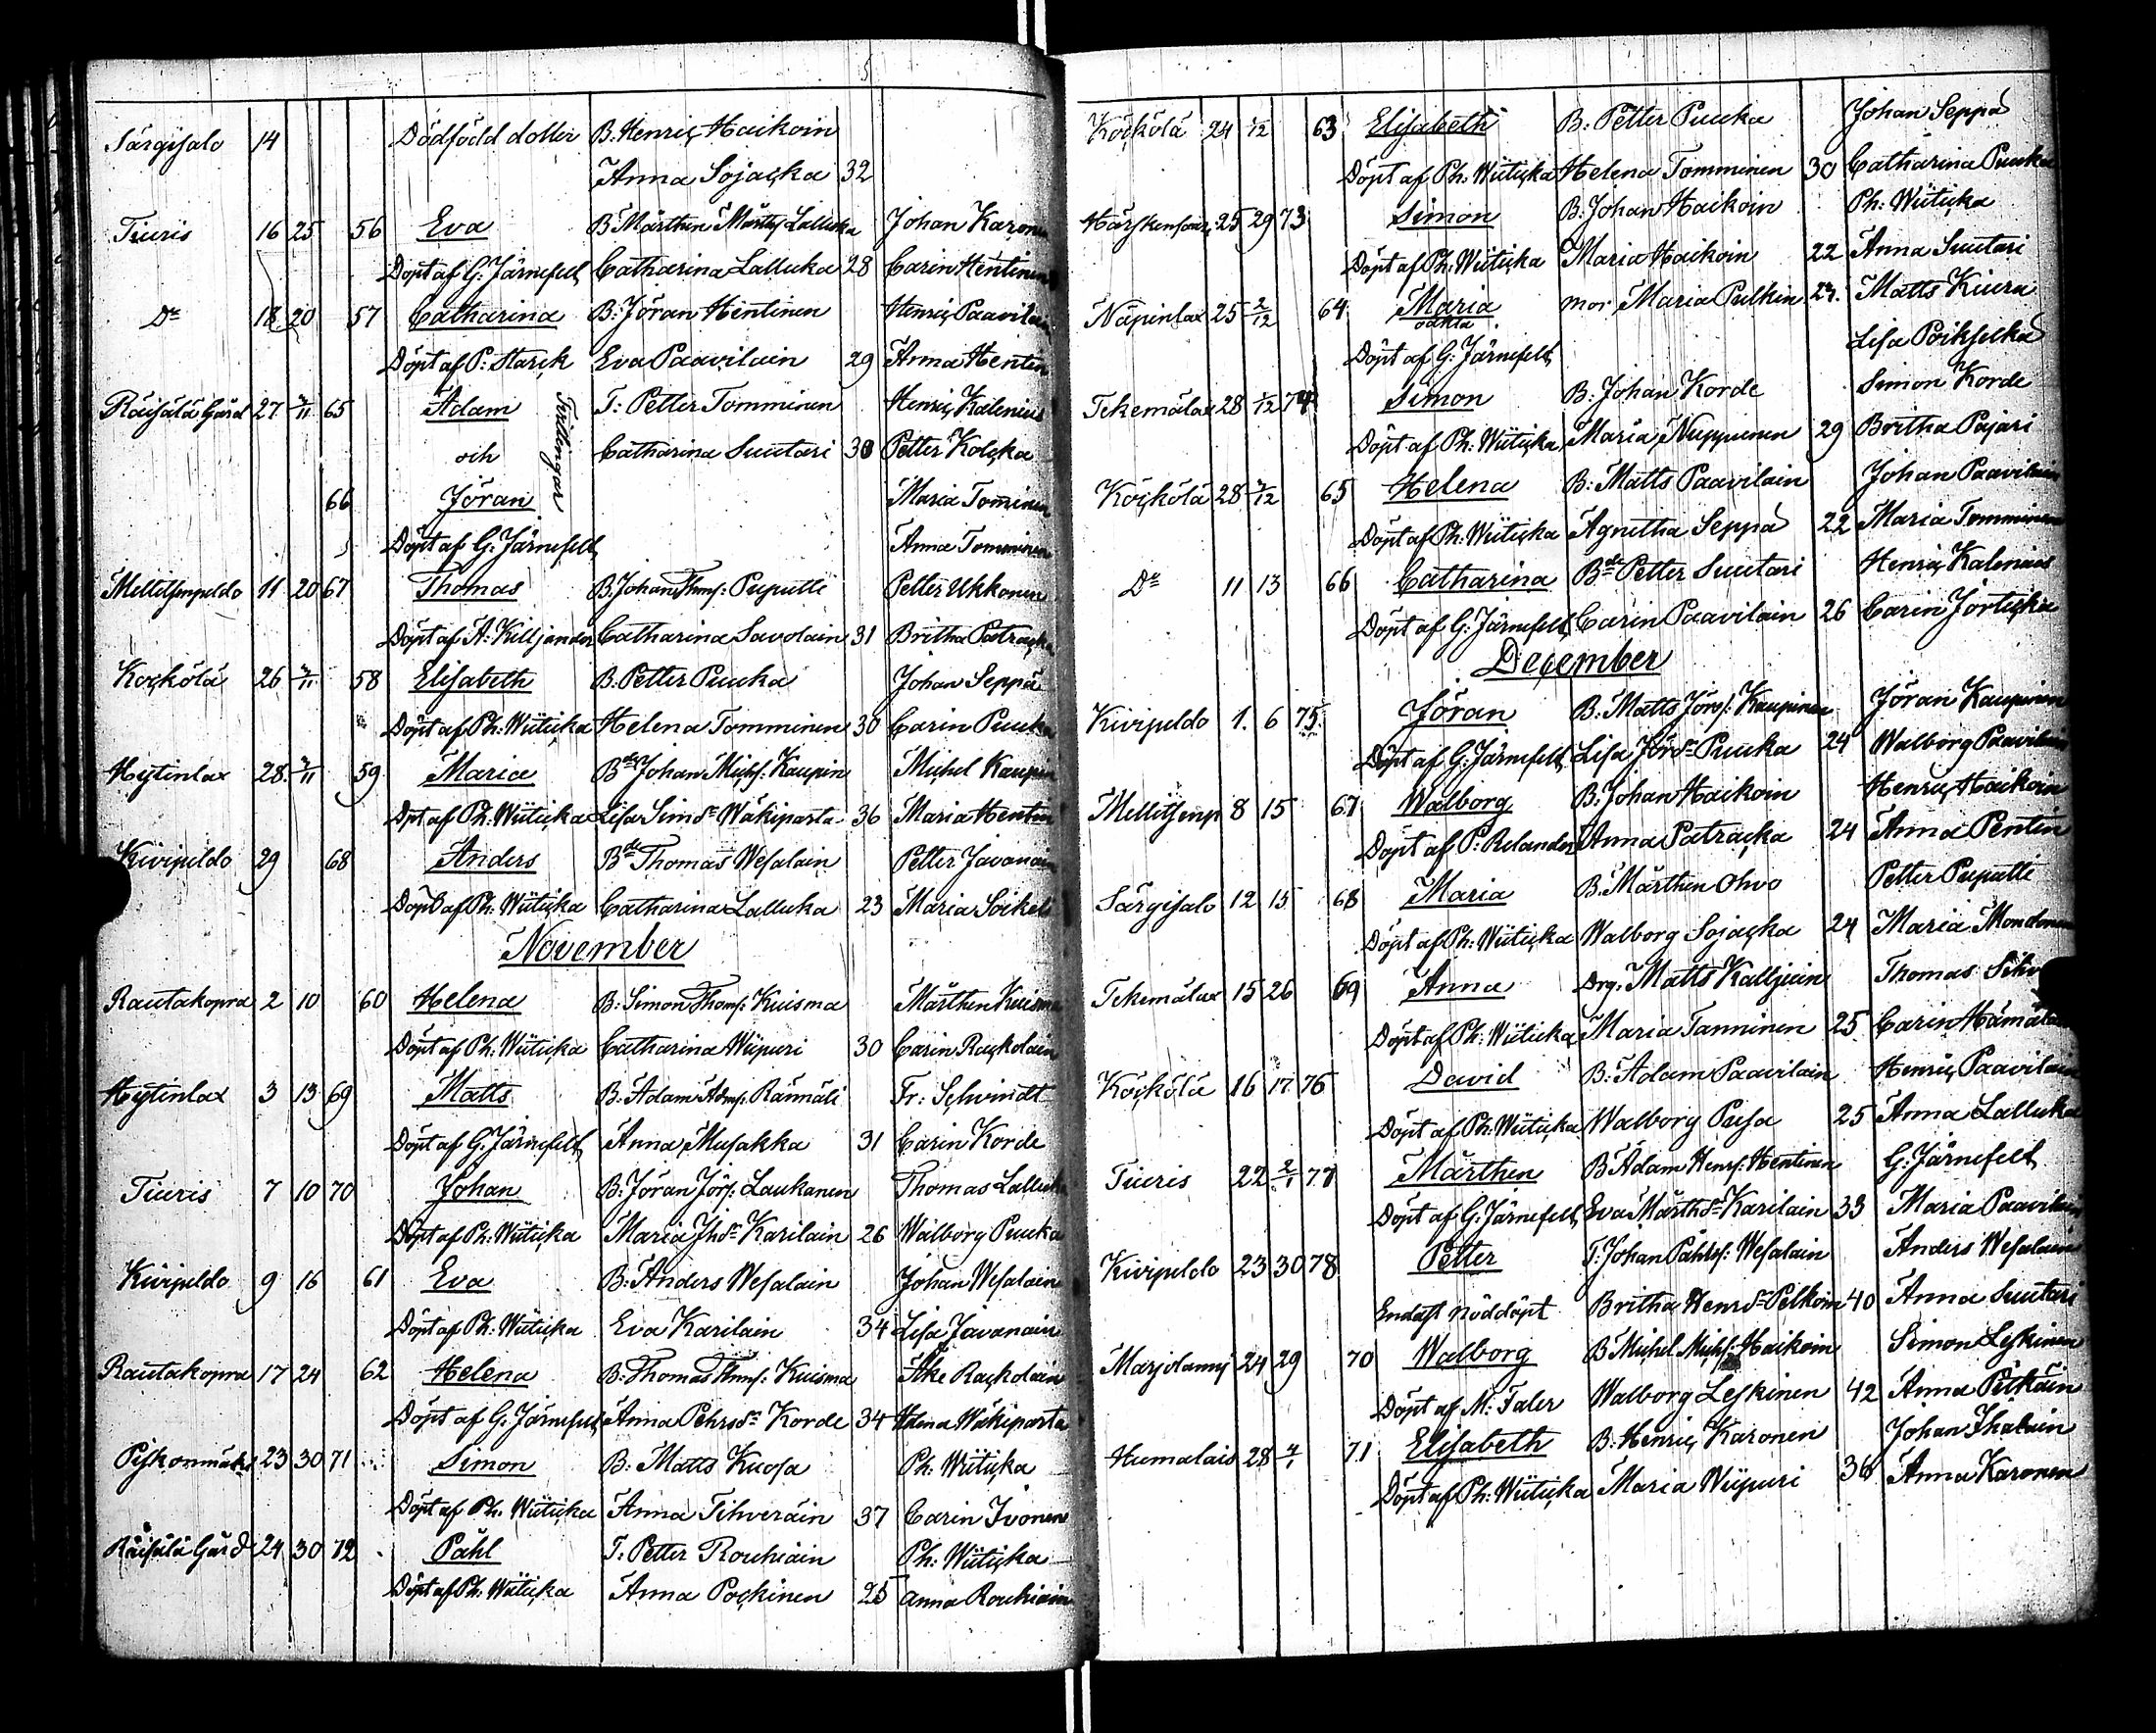 Särgisalo 14 Dödfödd dotter B. Henric Haikoin
Anna Sojacka 32
Tiuris 16 25 56 Eva B Mårthen Mårths Lalluka Johan Karonen
Döpt af G: Järnefelt Catharina Lalluka 28 Carin Hentinen
Do 18 20 57 Catharina B: Jöran Hentinen Henric Paavilain
Döpt af P: Starck Eva Paavilain 29 Anna Henten
Räisälä Gård 27 2/11 65 Adam Tvillingar T: Petter Tomminen Henric Kalenius
och Catharina Suutari 30 Petter Kolcka
66 Jöran Maria Tominen
Döpt af G: Järnefelt Anna Tomminen
Mellitsenpeldo 11 20 67 Thomas B. Johan Thms: Puputti Petter Ukkonen
Döpt af A: Killjander Catharina Savolain 31 Britha Patracka
Kockölä 26 2/11 58 Elisabeth B. Petter Puucka Johan Seppä
Döpt af Ph: Wiiticka Helena Tomminen 30 Carin Puucka
Hytinlax 28 2/11 59 Maria Bde Johan Michs: Kaupin Michel Kaupin
Dpt af Ph: Wiiticka Lisa Simsdr Wäkiparta 36 Maria Hentin
Kivipeldo 29 68 Anders Bde Thomas Wesalain Petter Javanain
Döpt af Ph: Wiiticka Catharina Lalluka 23 Maria Soikeli
November
Rautakopra 2 10 60 Helena B: Simon Thoms: Kuisma Mårthen Kuisma
Döpt af Ph: Wiiticka Catharina Wiipuri 30 Carin Rackolain
Hytinlax 3 13 69 Matts B: Adam Adms: Rännäli Fr: Schvindt
Döpt af G: Järnefelt Anna Musakka 31 Carin Korde
Tiuris 7 10 70 Johan B: Jöran Jörs: Laukanen Thomas Lalluka
Döpt af Ph: Wiiticka Maria Jhsdr Karilain 26 Walborg Puucka
Kivipeldo 9 16 61 Eva B: Anders Wesalain Johan Wesalain
Döpt af Ph: Wiiticka Eva Karilain 34 Lisa Javanain
Rautakopra 17 24 62 Helena B: Thomas Thms: Kuisma Ake Rackolain
Döpt af G: Järnefelt Anna Pehrsdr Korde 34 Helena Wäkiparta
Piskonmäki 23 30 71 Simon B: Matts Kuosa Ph: Wiiticka
Döpt af Ph. Wiiticka Anna Tihveräin 37 Carin Ivonen
Räisälä Gård 24 30 72 Påhl T: Petter Rouhiäin Ph: Wiiticka
Döpt af Ph: Wiiticka Anna Pockinen 25 Anna Rouhiain
Kockölä 24 1/12 63 Elisabeth B: Petter Puucka Johan Seppä
Döpt af Ph: Wiiticka Helena Tomminen 30 Catharina Puucka
25 29 73 Simon B: Johan Haikoin Ph: Wiiticka
Döpt af Ph: Wiiticka Maria Haikoin 22 Anna Suutari
Näpinlax 25 2/12 64 Maria oäkta mor Maria Pulkin 27. Matts Kiura
Döpt af G: Järnefelt Lisa Poikselkä
Tekemälax 28 1/12 74 Simon B: Johan Korde Simon Korde
Döpt af Ph: Wiiticka Maria Nuppunen 29 Britha Pajari
Kockölä 28 2/12 65 Helena B: Matts Paavilain Johan Paavilain
Döpt af Ph: Wiiticka Agnitha Seppä 22 Maria Tomminen
Do 11 13 66 Catharina Bde Petter Suutari Henric Kalenius
Döpt af G: Järnefelt Carin Paavilain 26 Carin Jörticka
December
Kivipeldo 1. 6 75. Jöran B: Matts Jörs: Kaupinen Jöran Kaupinen
Döpt af G: Järnefelt Lisa Jörsdr Puucka 24 Walborg Paavilain
Mellitsenp 8 15 67 Walborg B: Johan Haikoin Henric Haikoin
Döpt af P: Relander Anna Patracka 24 Anna Pentin
Särgisalo 12 15 68 Maria B: Mårthen Ohvo Petter Puputti
Döpt af Ph: Wiiticka Walborg Sojacka 24 Maria Mondonen
Tekemälax 15 26 69 Anna Drg: Matts Kalljuin Thomas
Döpt af Ph: Wiiticka Maria Tanninen 25. Carin
Kockölä 16 17 76 David B: Adam Paavilain Henric Paavilain
Döpt af Ph: Wiiticka Walborg Pusa 25 Anna Lalluka
Tiuris 22 2/1 77 Mårthen B Adam Henrs: Hentinen G: Järnefelt
Döpt af G: Järnefelt Eva Mårthsdr Karilain 33 Maria Paavilain
Kivipeldo 23 30 78 Petter T: Johan Påhls: Wesalain Anders Wesalain
Endast nöddöpt Britha Henrsdr Pelkoin 40 Anna Suutari
Marjolamj 24 29 70 Walborg B Michel Michs: Haikoin Simon Lykinen
Döpt af M: Faler Walborg Leskinen 42 Anna Pitkäin
Humalais 28 4/1 71 Elisabeth B: Henric Karonen Johan Ihalain
Döpt af Ph: Wiiticka Maria Wiipuri 36 Anna Karonen